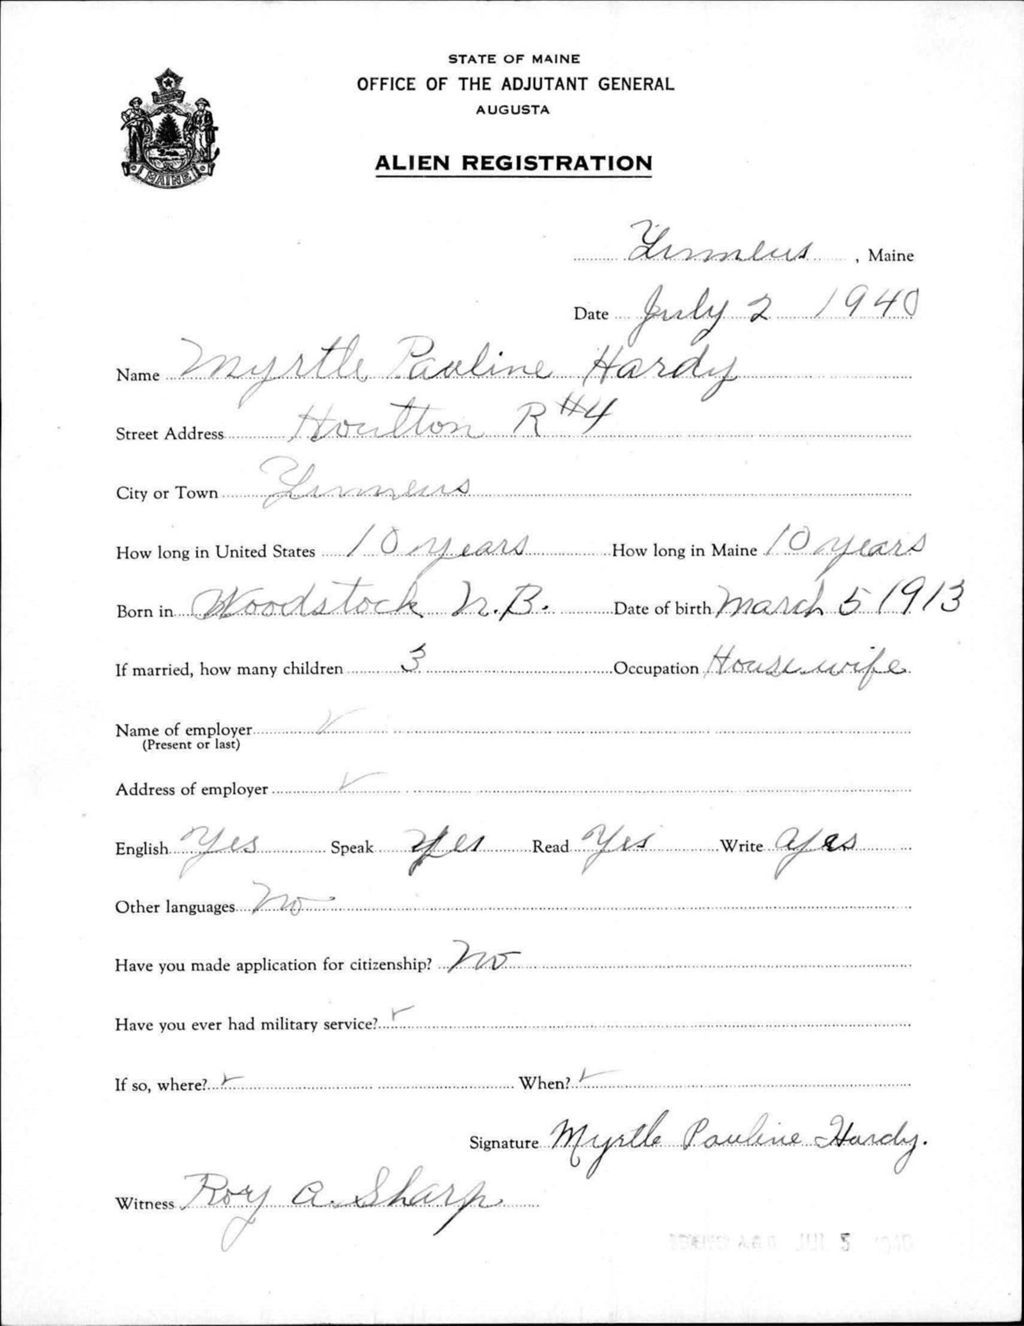 STATE OF MAINE
OFFICE OF THE ADJUTANT GENERAL
AUGUSTA
ALIEN REGISTRATION
MAINE
Linneus, Maine
Date July 2 1940
Name Myrtle Pauline Hardy
Street Address Houlton R#4
City or Town Linneus
How long in United States 10 years How long in Maine 10 years
Born in Woodstock N.B. Date of birth March 5 1913
If married, how many children 3 Occupation Housewife
Name of employer
(Present or last)
Address of employer
English Yes Speak Yes Read Yes Write Yes
Other languages No
Have you made application for citizenship? No
Have you ever had military service?
If so, where? When?
Signature Myrtle Pauline Hardy.
Witness Roy A. Sharp
A.G.O. JUL 5 1940